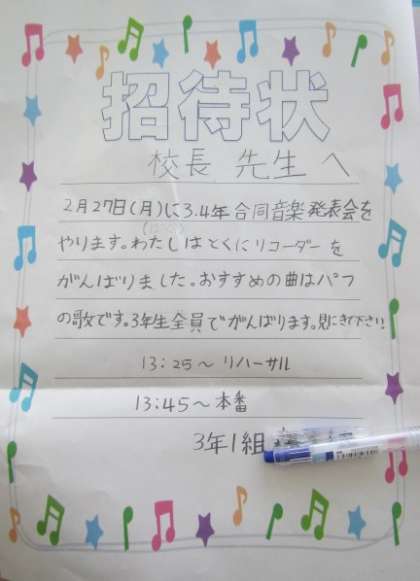 招待状
校長 先生 へ
2月27日(月)に3.4年 合同音楽 発表会を
やります。わたしはとくにリコーダーを
がんばりました。おすすめの曲はパフ
の歌です。3年生全員でがんばります。見にきて下さい!
13:25〜リハーサル
13:45〜本番
3年1組